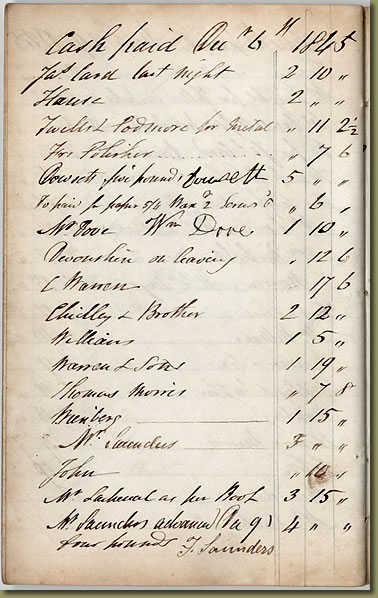 Cash paid Dec 6th 1845
Jas Card last night 2 10 "
House 2 " "
Twells & Podmore for Metal " 11 2½
Frs Polisher " 7 6
Dowsett five pounds Dowsett 5 " "
To paid for paper 5/4 Wax 2 Screws 6 " 6 "
Mr Dove Wm Dove 1 10 "
Devonshire on leaving " 12 6
C Warren 17 6
Chidley & Brother 2 12 "
Williams 1 5 "
Warren & Sons 1 19 "
Thomas Morris " 7 8
1 15 "
Mr Saunders 5 " "
John " 10 "
Mr as per Book 3 15 "
Mr Saunders advanced Dec 9 4 " "
four pounds T. Saunders